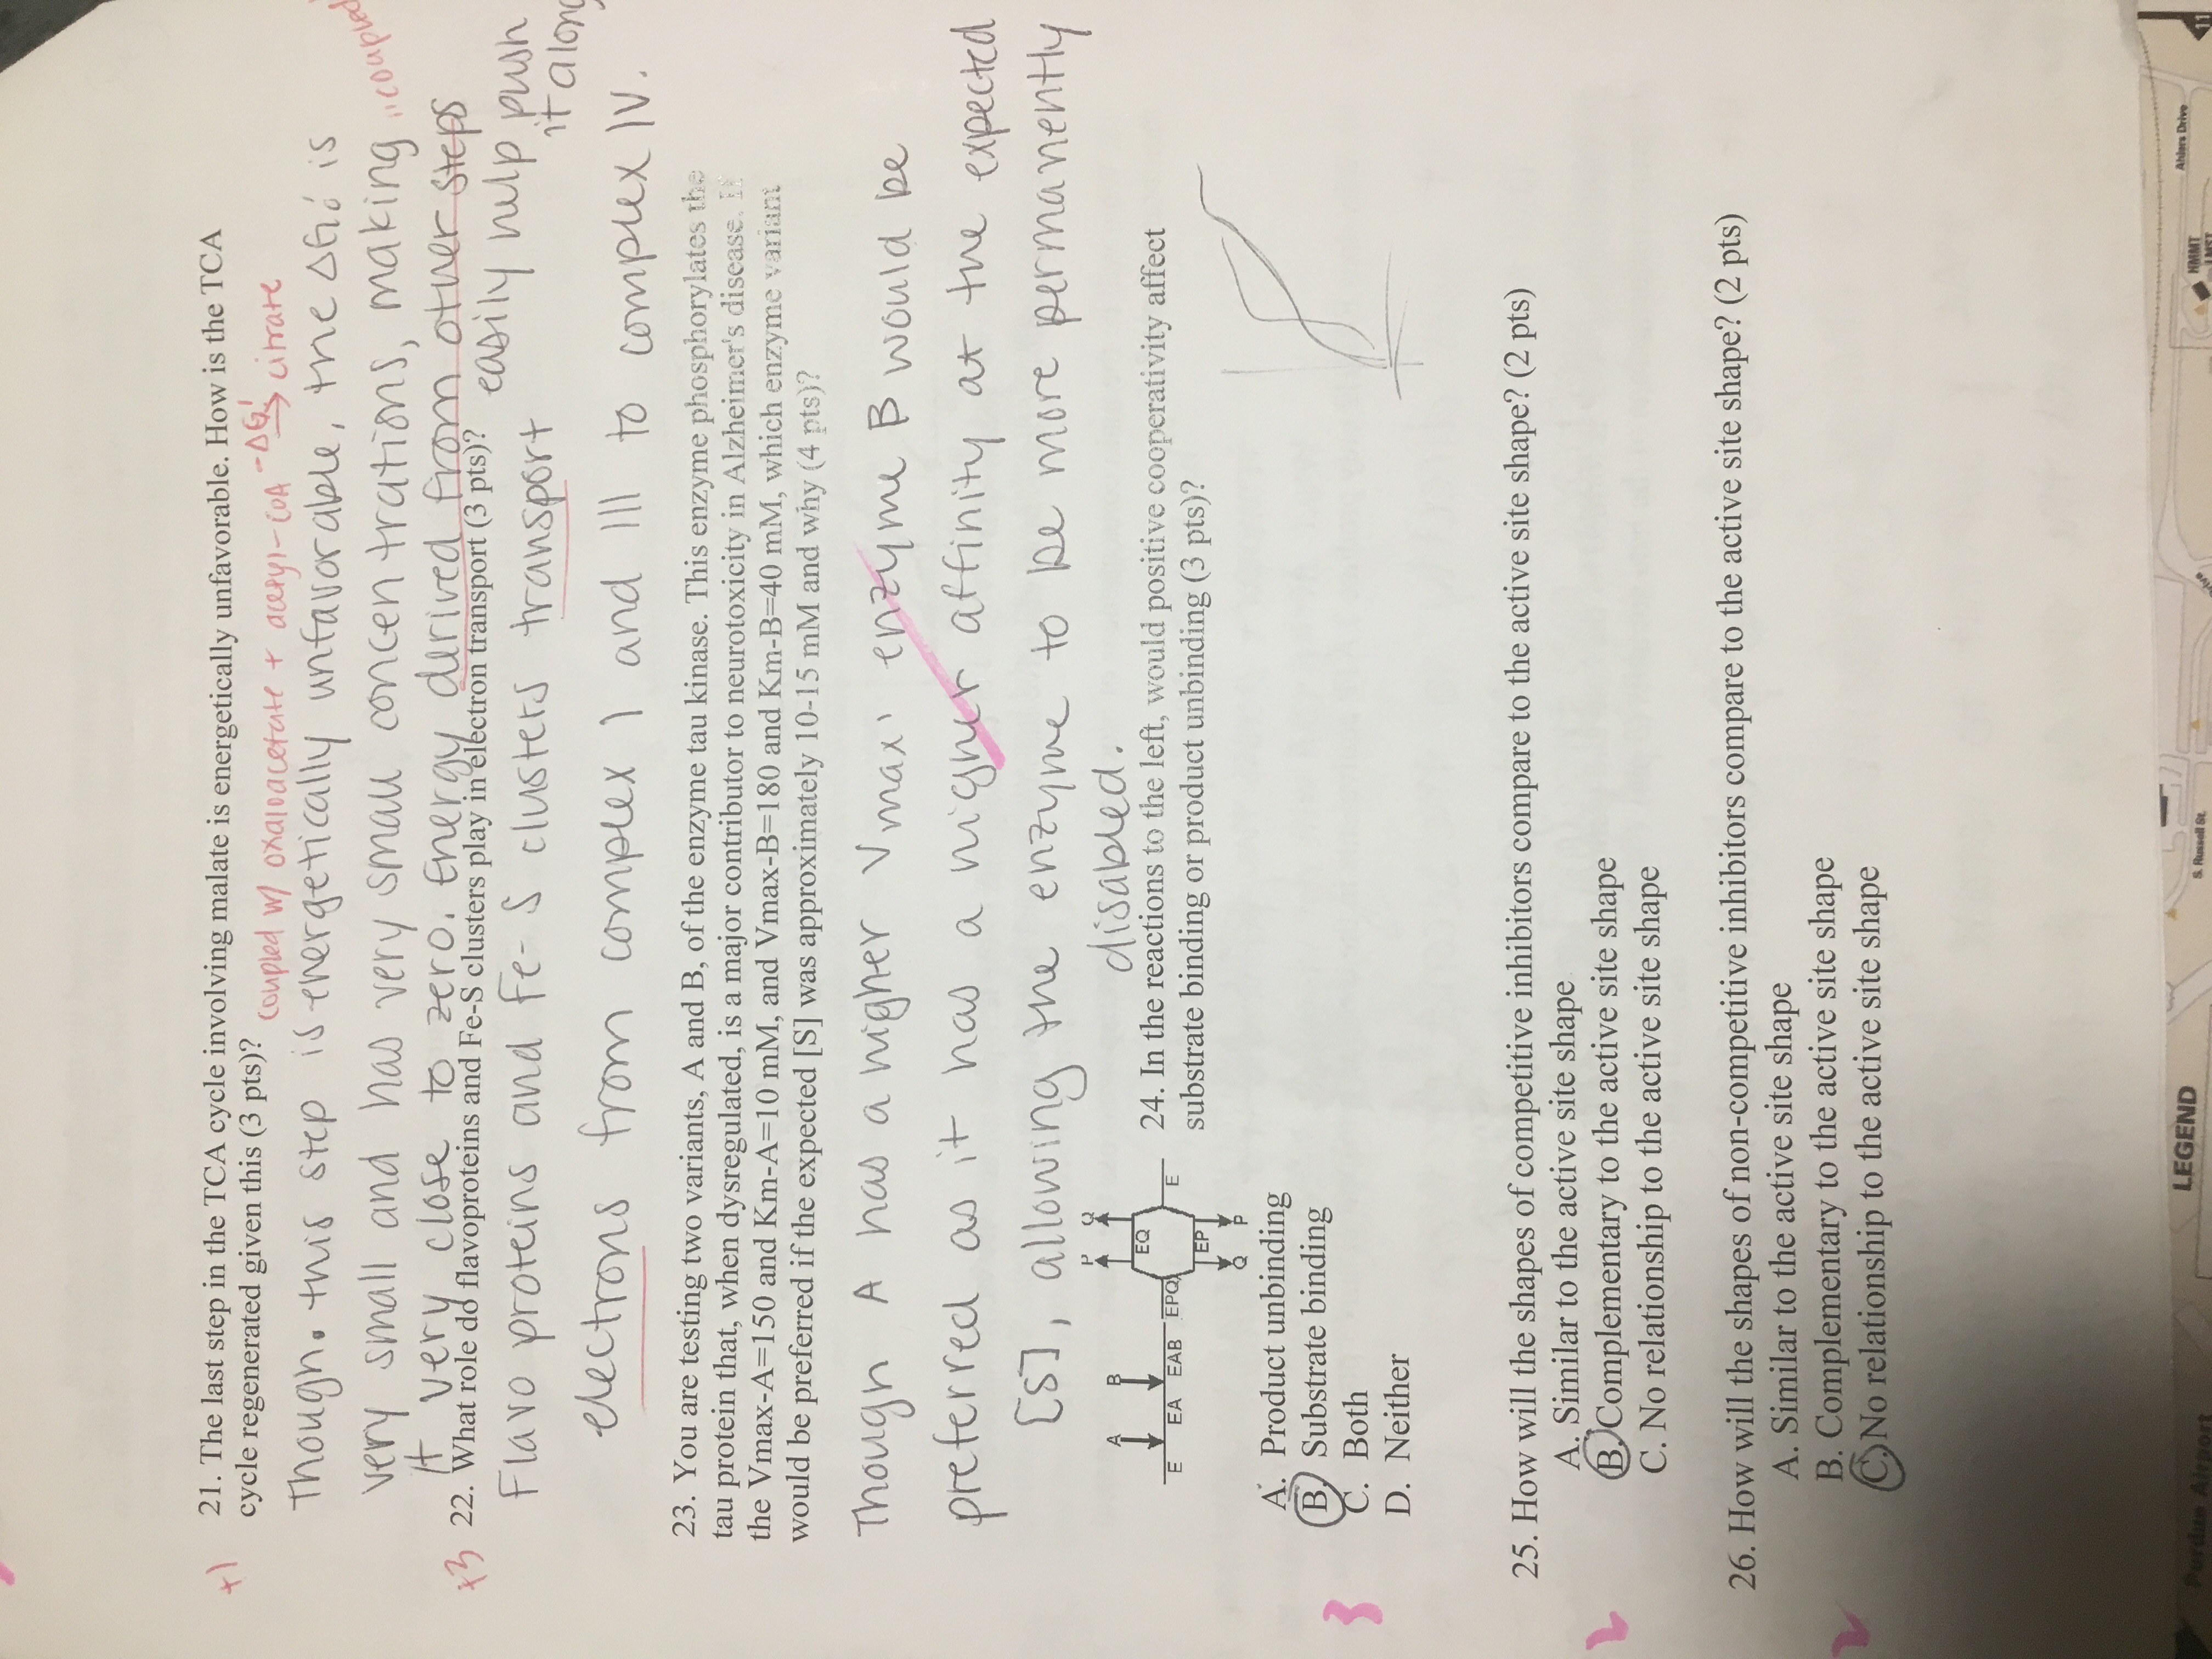 +1
21. The last step in the TCA cycle involving malate is energetically unfavorable. How is the TCA
cycle regenerated given this (3 pts)?
coupled w/ oxaloacetate + acetyl-CoA -ΔG' → citrate
Though this step is energetically unfavorable, the ΔG°' is
very small and has very small concentrations, making
"coupled
it very close to zero. Energy derived from other steps
easily help push
it along
+3
22. What role do flavoproteins and Fe-S clusters play in electron transport (3 pts)?
Flavo proteins and Fe-S clusters transport
electrons from complex I and III to complex IV.
23. You are testing two variants, A and B, of the enzyme tau kinase. This enzyme phosphorylates the
tau protein that, when dysregulated, is a major contributor to neurotoxicity in Alzheimer's disease. If
the Vmax-A=150 and Km-A=10 mM, and Vmax-B=180 and Km-B=40 mM, which enzyme variant
would be preferred if the expected [S] was approximately 10-15 mM and why (4 pts)?
Though A has a higher Vmax, enzyme B would be
preferred as it has a higher affinity at the expected
[S], allowing the enzyme to be more permanently
disabled.
A B P Q
E EA EAB EPQ EQ E
EP
Q P
24. In the reactions to the left, would positive cooperativity affect
substrate binding or product unbinding (3 pts)?
A. Product unbinding
B. Substrate binding
C. Both
D. Neither
3
25. How will the shapes of competitive inhibitors compare to the active site shape? (2 pts)
A. Similar to the active site shape
B. Complementary to the active site shape
C. No relationship to the active site shape
2
26. How will the shapes of non-competitive inhibitors compare to the active site shape? (2 pts)
A. Similar to the active site shape
B. Complementary to the active site shape
C. No relationship to the active site shape
2
Purdue Airport
LEGEND
S. Russell St.
HMMT
LMST
Ahlers Drive
11